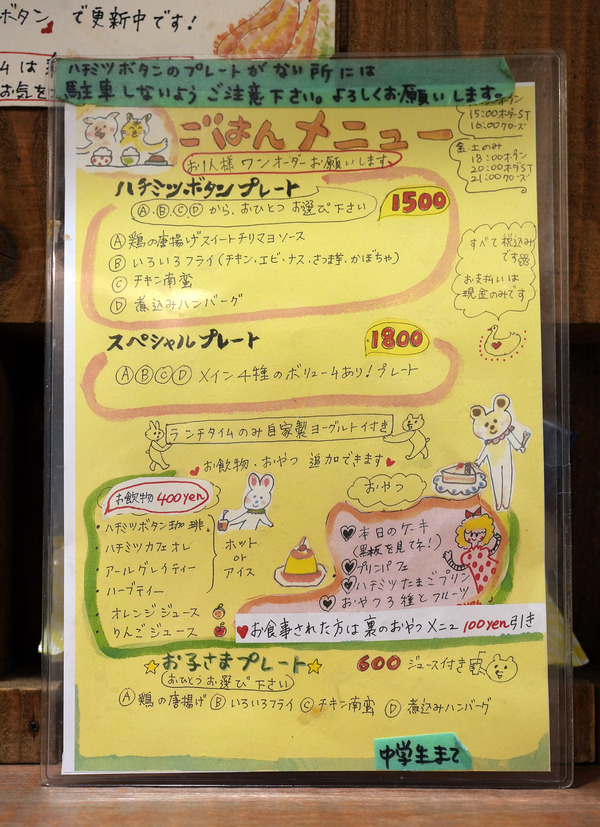 ボタン で更新中です!
ムは
お気を
ハチミツボタンのプレートがない所には
駐車しないようご注意下さい。よろしくお願いします。
ごはんメニュー
お1人様ワンオーダーお願いします
15:00オーダーST
16:00クローズ
金・土のみ
18:00オープン
20:00オーダーST
21:00クローズ
ハチミツボタンプレート
Ⓐ・Ⓑ・Ⓒ・Ⓓから、おひとつお選び下さい
1500
Ⓐ鶏の唐揚げスイートチリマヨソース
Ⓑいろいろフライ(チキン・エビ・ナス・さつま芋・かぼちゃ)
Ⓒチキン南蛮
Ⓓ煮込みハンバーグ
すべて税込み
です
お支払いは
現金のみです
スペシャルプレート
1800
ⒶⒷⒸⒹメイン4種のボリュームあり!プレート
ランチタイムのみ自家製ヨーグルト付き
お飲物、おやつ 追加できます
お飲物 400yen
・ハチミツボタン珈琲
・ハチミツカフェオレ
・アールグレイティー
・ハーブティー
オレンジジュース
・りんごジュース
ホット
or
アイス
おやつ
本日のケーキ
(黒板を見てネ!)
プリンパフェ
ハチミツたまごプリン
おやつ3種とフルーツ
♥お食事された方は裏のおやつメニュー100yen引き
☆お子さまプレート☆
600 ジュース付き
おひとつお選び下さい
Ⓐ鶏の唐揚げ Ⓑいろいろフライ Ⓒチキン南蛮 Ⓓ煮込みハンバーグ
中学生まで